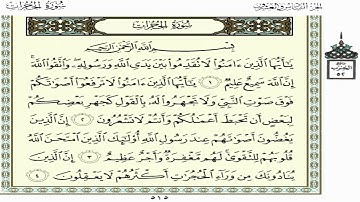 سُورَةُ الحُجُرَاتِ
الجزء السادس والعشرون
سُورَةُ الحُجُرَاتِ
بِسْمِ اللَّهِ الرَّحْمَٰنِ الرَّحِيمِ
يَٰٓأَيُّهَا ٱلَّذِينَ ءَامَنُوا۟ لَا تُقَدِّمُوا۟ بَيْنَ يَدَىِ ٱللَّهِ وَرَسُولِهِۦ وَٱتَّقُوا۟ ٱللَّهَ
إِنَّ ٱللَّهَ سَمِيعٌ عَلِيمٌ ١ يَٰٓأَيُّهَا ٱلَّذِينَ ءَامَنُوا۟ لَا تَرْفَعُوٓا۟ أَصْوَٰتَكُمْ
فَوْقَ صَوْتِ ٱلنَّبِىِّ وَلَا تَجْهَرُوا۟ لَهُۥ بِٱلْقَوْلِ كَجَهْرِ بَعْضِكُمْ
لِبَعْضٍ أَن تَحْبَطَ أَعْمَٰلُكُمْ وَأَنتُمْ لَا تَشْعُرُونَ ٢ إِنَّ ٱلَّذِينَ
يَغُضُّونَ أَصْوَٰتَهُمْ عِندَ رَسُولِ ٱللَّهِ أُو۟لَٰٓئِكَ ٱلَّذِينَ ٱمْتَحَنَ ٱللَّهُ
قُلُوبَهُمْ لِلتَّقْوَىٰ لَهُم مَّغْفِرَةٌ وَأَجْرٌ عَظِيمٌ ٣ إِنَّ ٱلَّذِينَ
يُنَادُونَكَ مِن وَرَآءِ ٱلْحُجُرَٰتِ أَكْثَرُهُمْ لَا يَعْقِلُونَ ٤
الحزب
٥٢
٥١٥